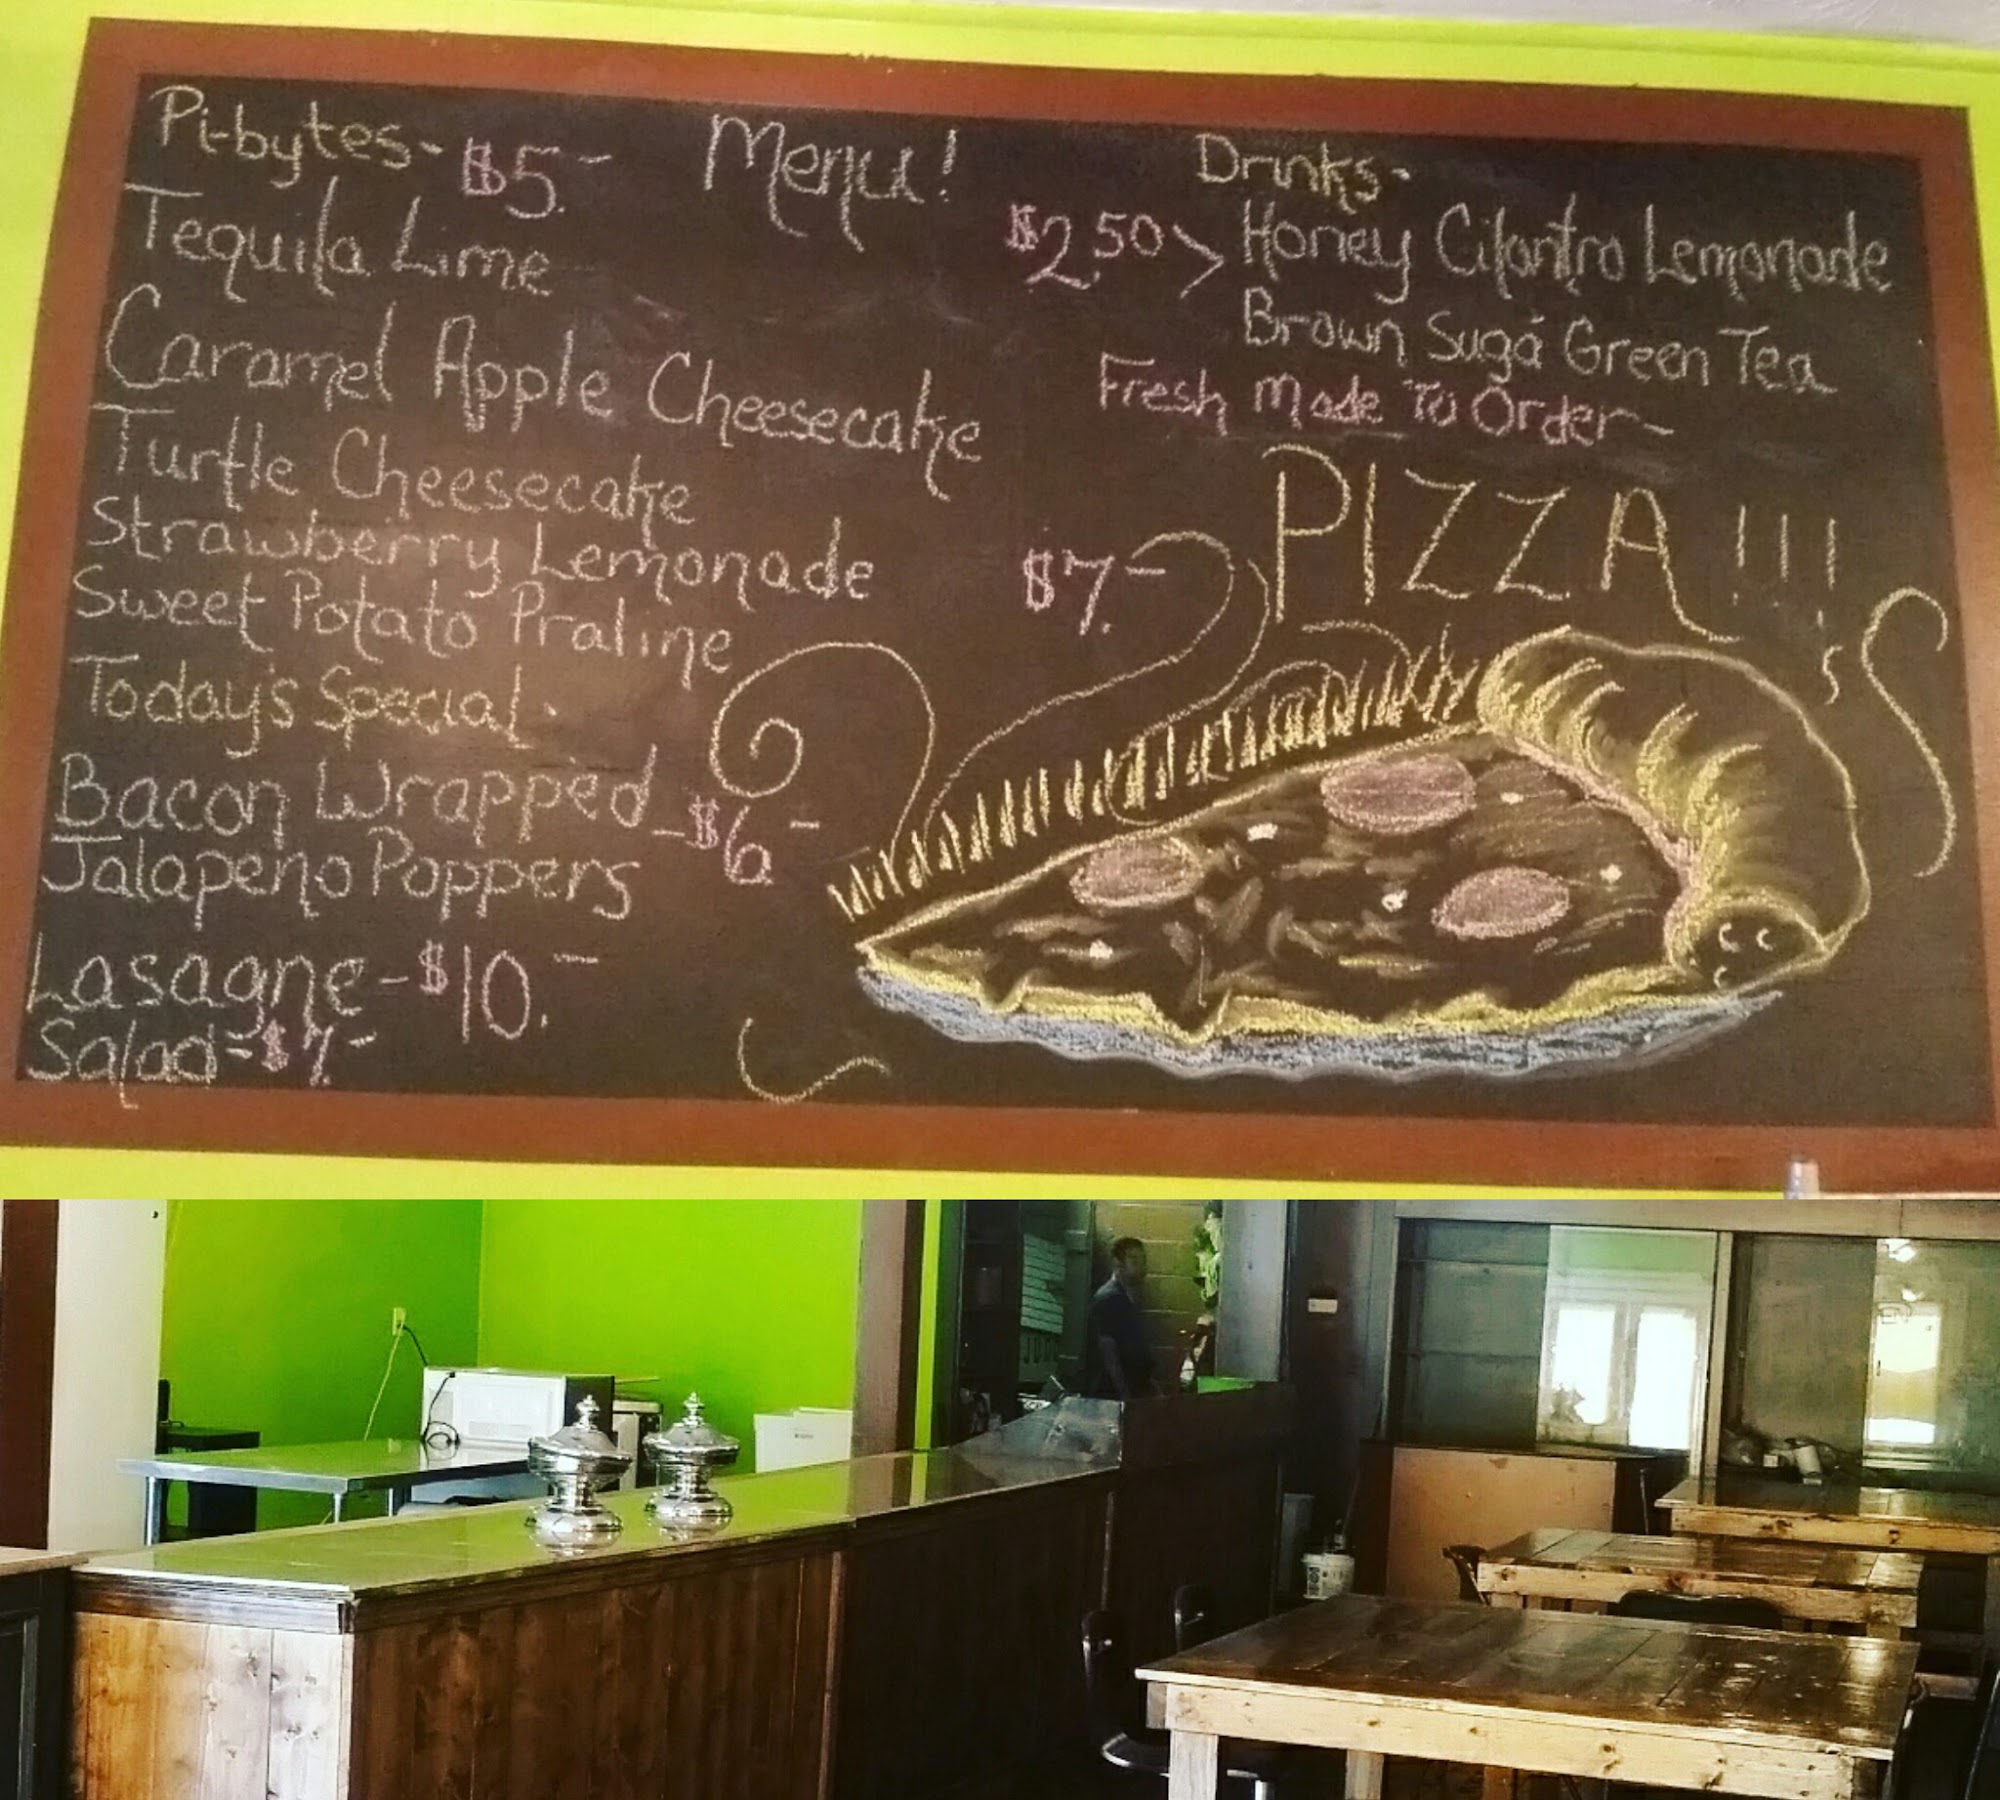 Menu!
Pi-bytes- $5.-
Tequila Lime
Caramel Apple Cheesecake
Turtle Cheesecake
Strawberry Lemonade
Sweet Potato Praline
Today's Special-
Bacon Wrapped
Jalapeno Poppers -$6.-
Lasagne-$10.-
Salad-$7.-
Drinks-
$2.50> Honey Cilantro Lemonade
Brown Suga Green Tea
Fresh Made To Order-
PIZZA!!!
$7.-